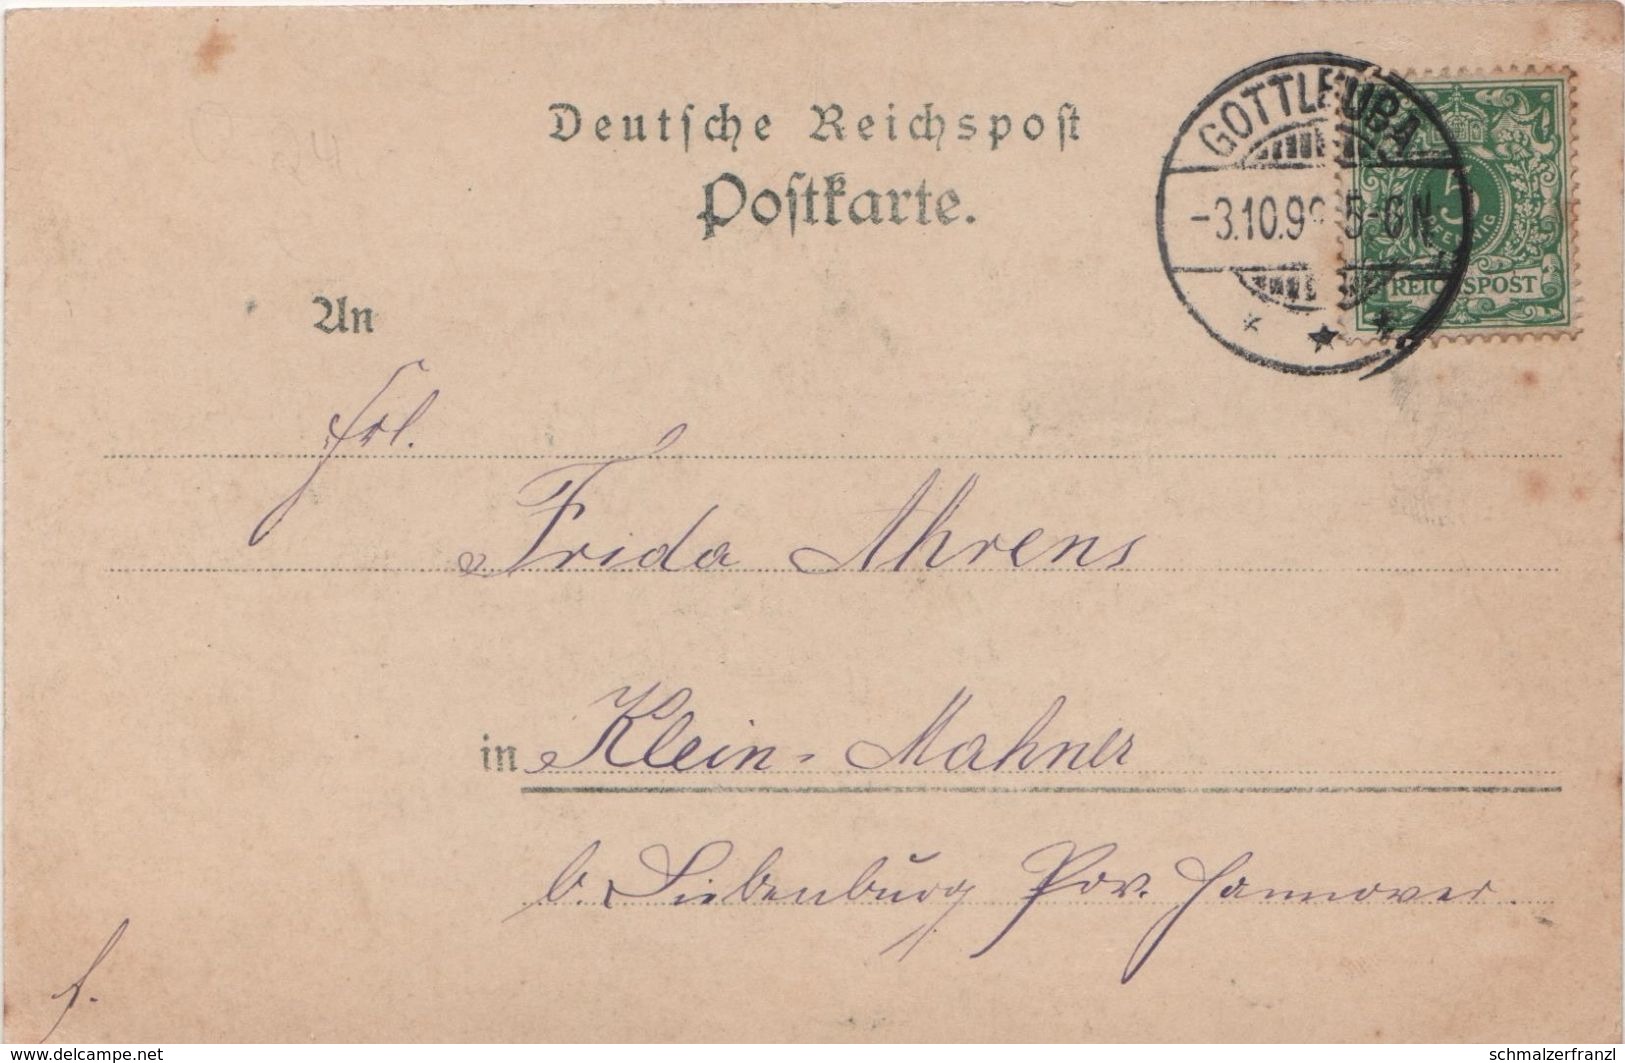 Deutsche Reichspost
Postkarte.
GOTTLEUBA
-3.10.99 5-6N
5
PFENNIG
REICHSPOST
An
Frl.
Frida Ahrens
in Klein-Mahner
b. Liebenburg Prov. Hannover.
f.
www.delcampe.net
schmalzerfranzl